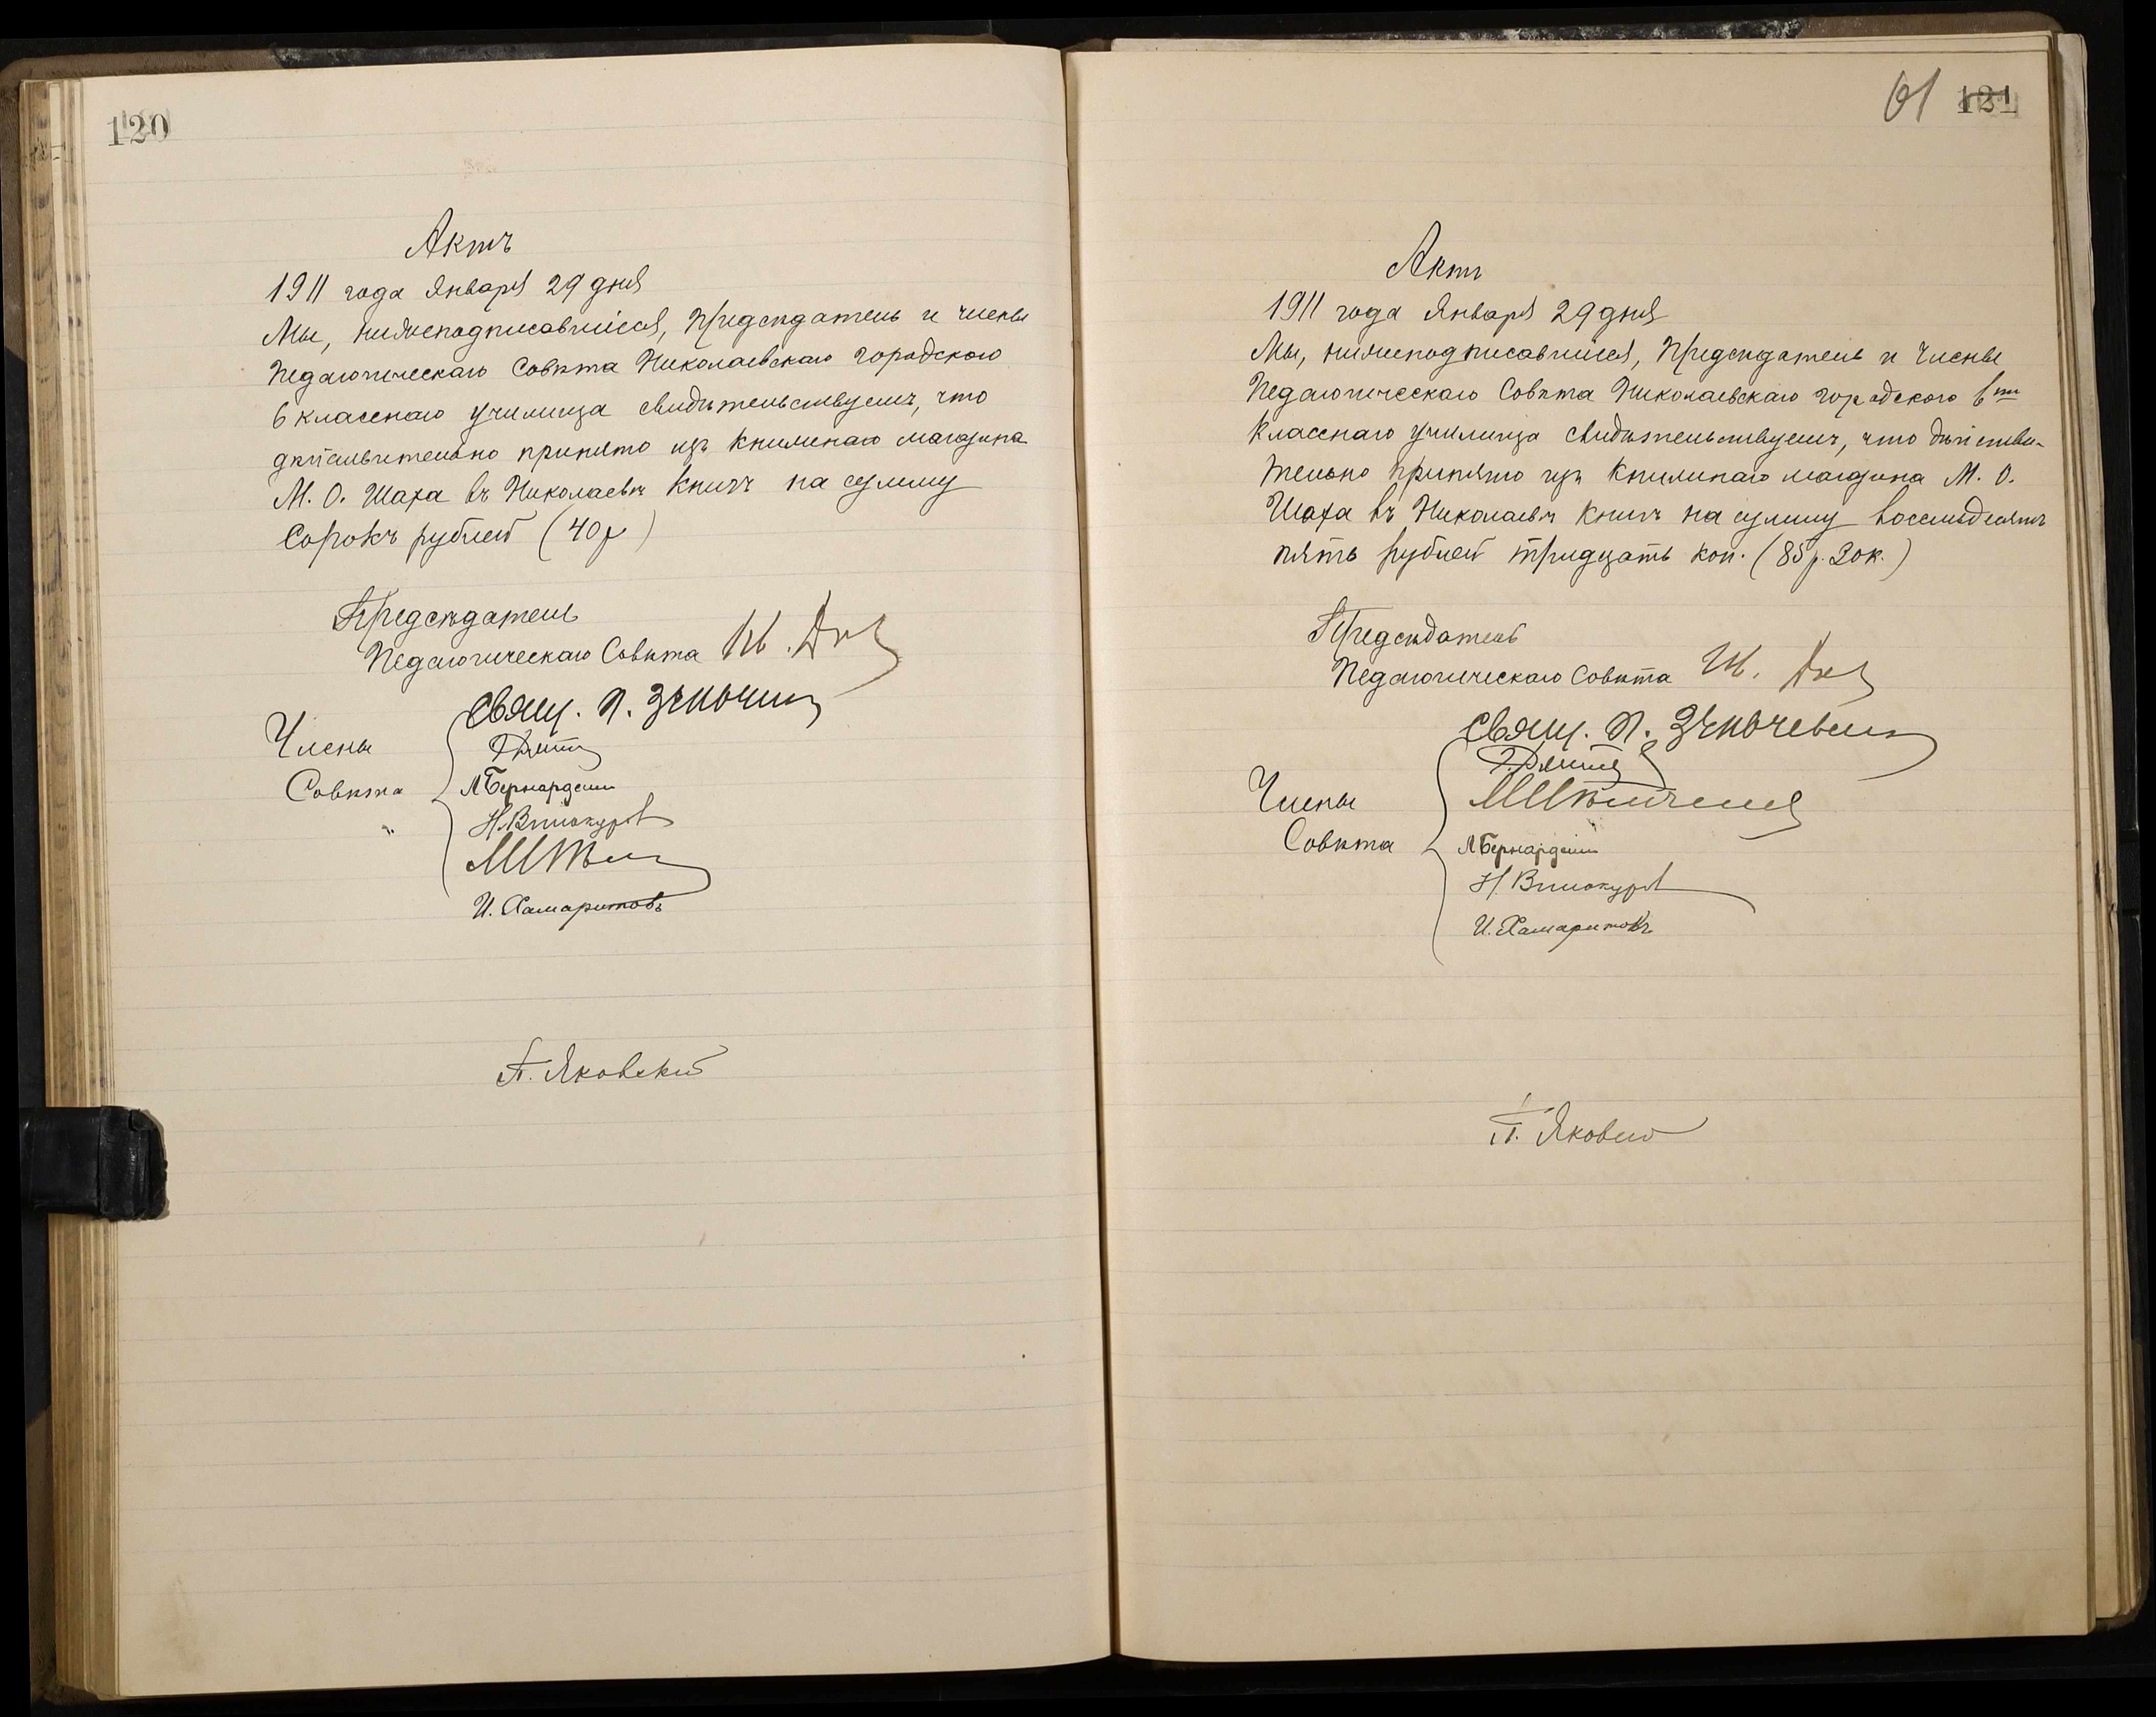 120
Актъ
1911 года Января 29 дня
Мы, нижеподписавшіеся, Предсѣдатель и члены
Педагогическаго Совѣта Николаевскаго городского
6 класснаго училища свидѣтельствуемъ, что
дѣйствительно принято изъ книжнаго магазина
М. О. Шаха въ Николаевѣ книгъ на сумму
Сорокъ рублей (40 р)
Предсѣдатель
Педагогическаго Совѣта
Свящ. П.
Члены
Совѣта
Л Бернардели
Н. Винокуров
И. Хамаритовъ
П. Яковскій
61 121
Актъ
1911 года Января 29 дня
Мы, нижеподписавшіеся, Предсѣдатель и Члены
Педагогическаго Совѣта Николаевскаго городского 6ти
класснаго училища свидѣтельствуемъ, что дѣйстви-
тельно принято изъ книжнаго магазина М. О.
Шаха въ Николаевѣ книгъ на сумму восемьдесятъ
пять рублей тридцать коп. (85 р. 30 к.)
Предсѣдатель
Педагогическаго Совѣта
Свящ. П.
Члены
Совѣта
Л Бернардели
Н. Винокуров
И. Хамаритовъ
П.